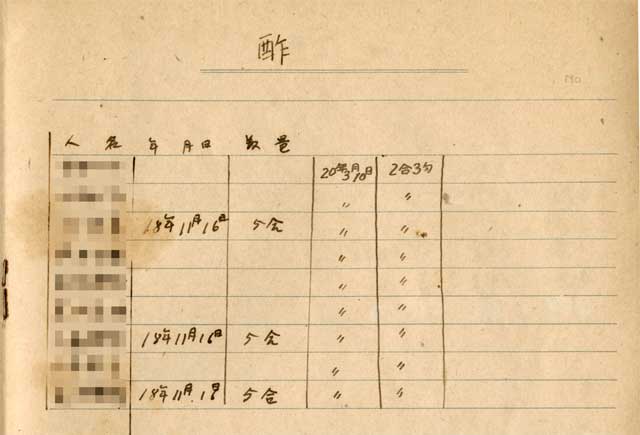 酢
人名 年月日 数量
20年3月10日 2合3勺
〃 〃
18年11月16日 5合 〃 〃
〃 〃
〃 〃
〃 〃
18年11月16日 5合 〃 〃
〃 〃
18年11月1日 5合 〃 〃